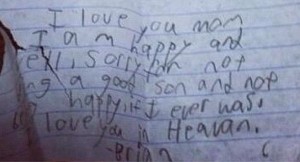 I love you mom
I am happy and
ell, sorry for not
ng a good son and not
happy if I ever was.
I love you in Heavan.
-Brian